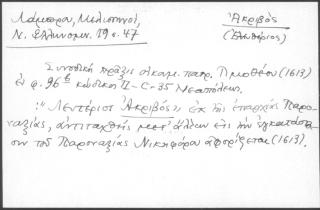 Λάμπρου, Μελισηνοί,
Ν. Ἑλληνομν. 19 σ. 47
Ἀκριβός
(Ἐλευθέριος)
Συνοδικὴ πρᾶξις οἰκουμ. πατρ. Τιμοθέου (1613)
ἐν φ. 96 κώδικος II-C-35 Νεαπόλεως.
"Λευτέρις Ἀκριβός" ἐκ τῆς ἐπαρχίας Παρο-
ναξίας, ἀντιταχθεὶς μετ' ἄλλων εἰς τὴν ἐγκατάστα-
σιν τοῦ Παροναξίας Νικηφόρου ἀφορίζεται (1613).